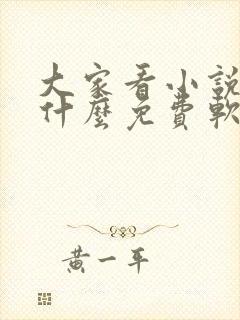 大家看小說
什麼免費軟
黃一平